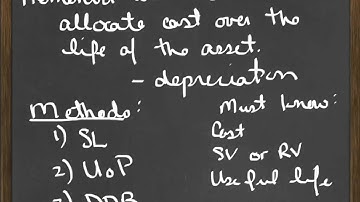 allocate cost over the
life of the asset.
- depreciation
Methods:
1) SL
2) UoP
3) DDB
Must know:
Cost
SV or RV
Useful life